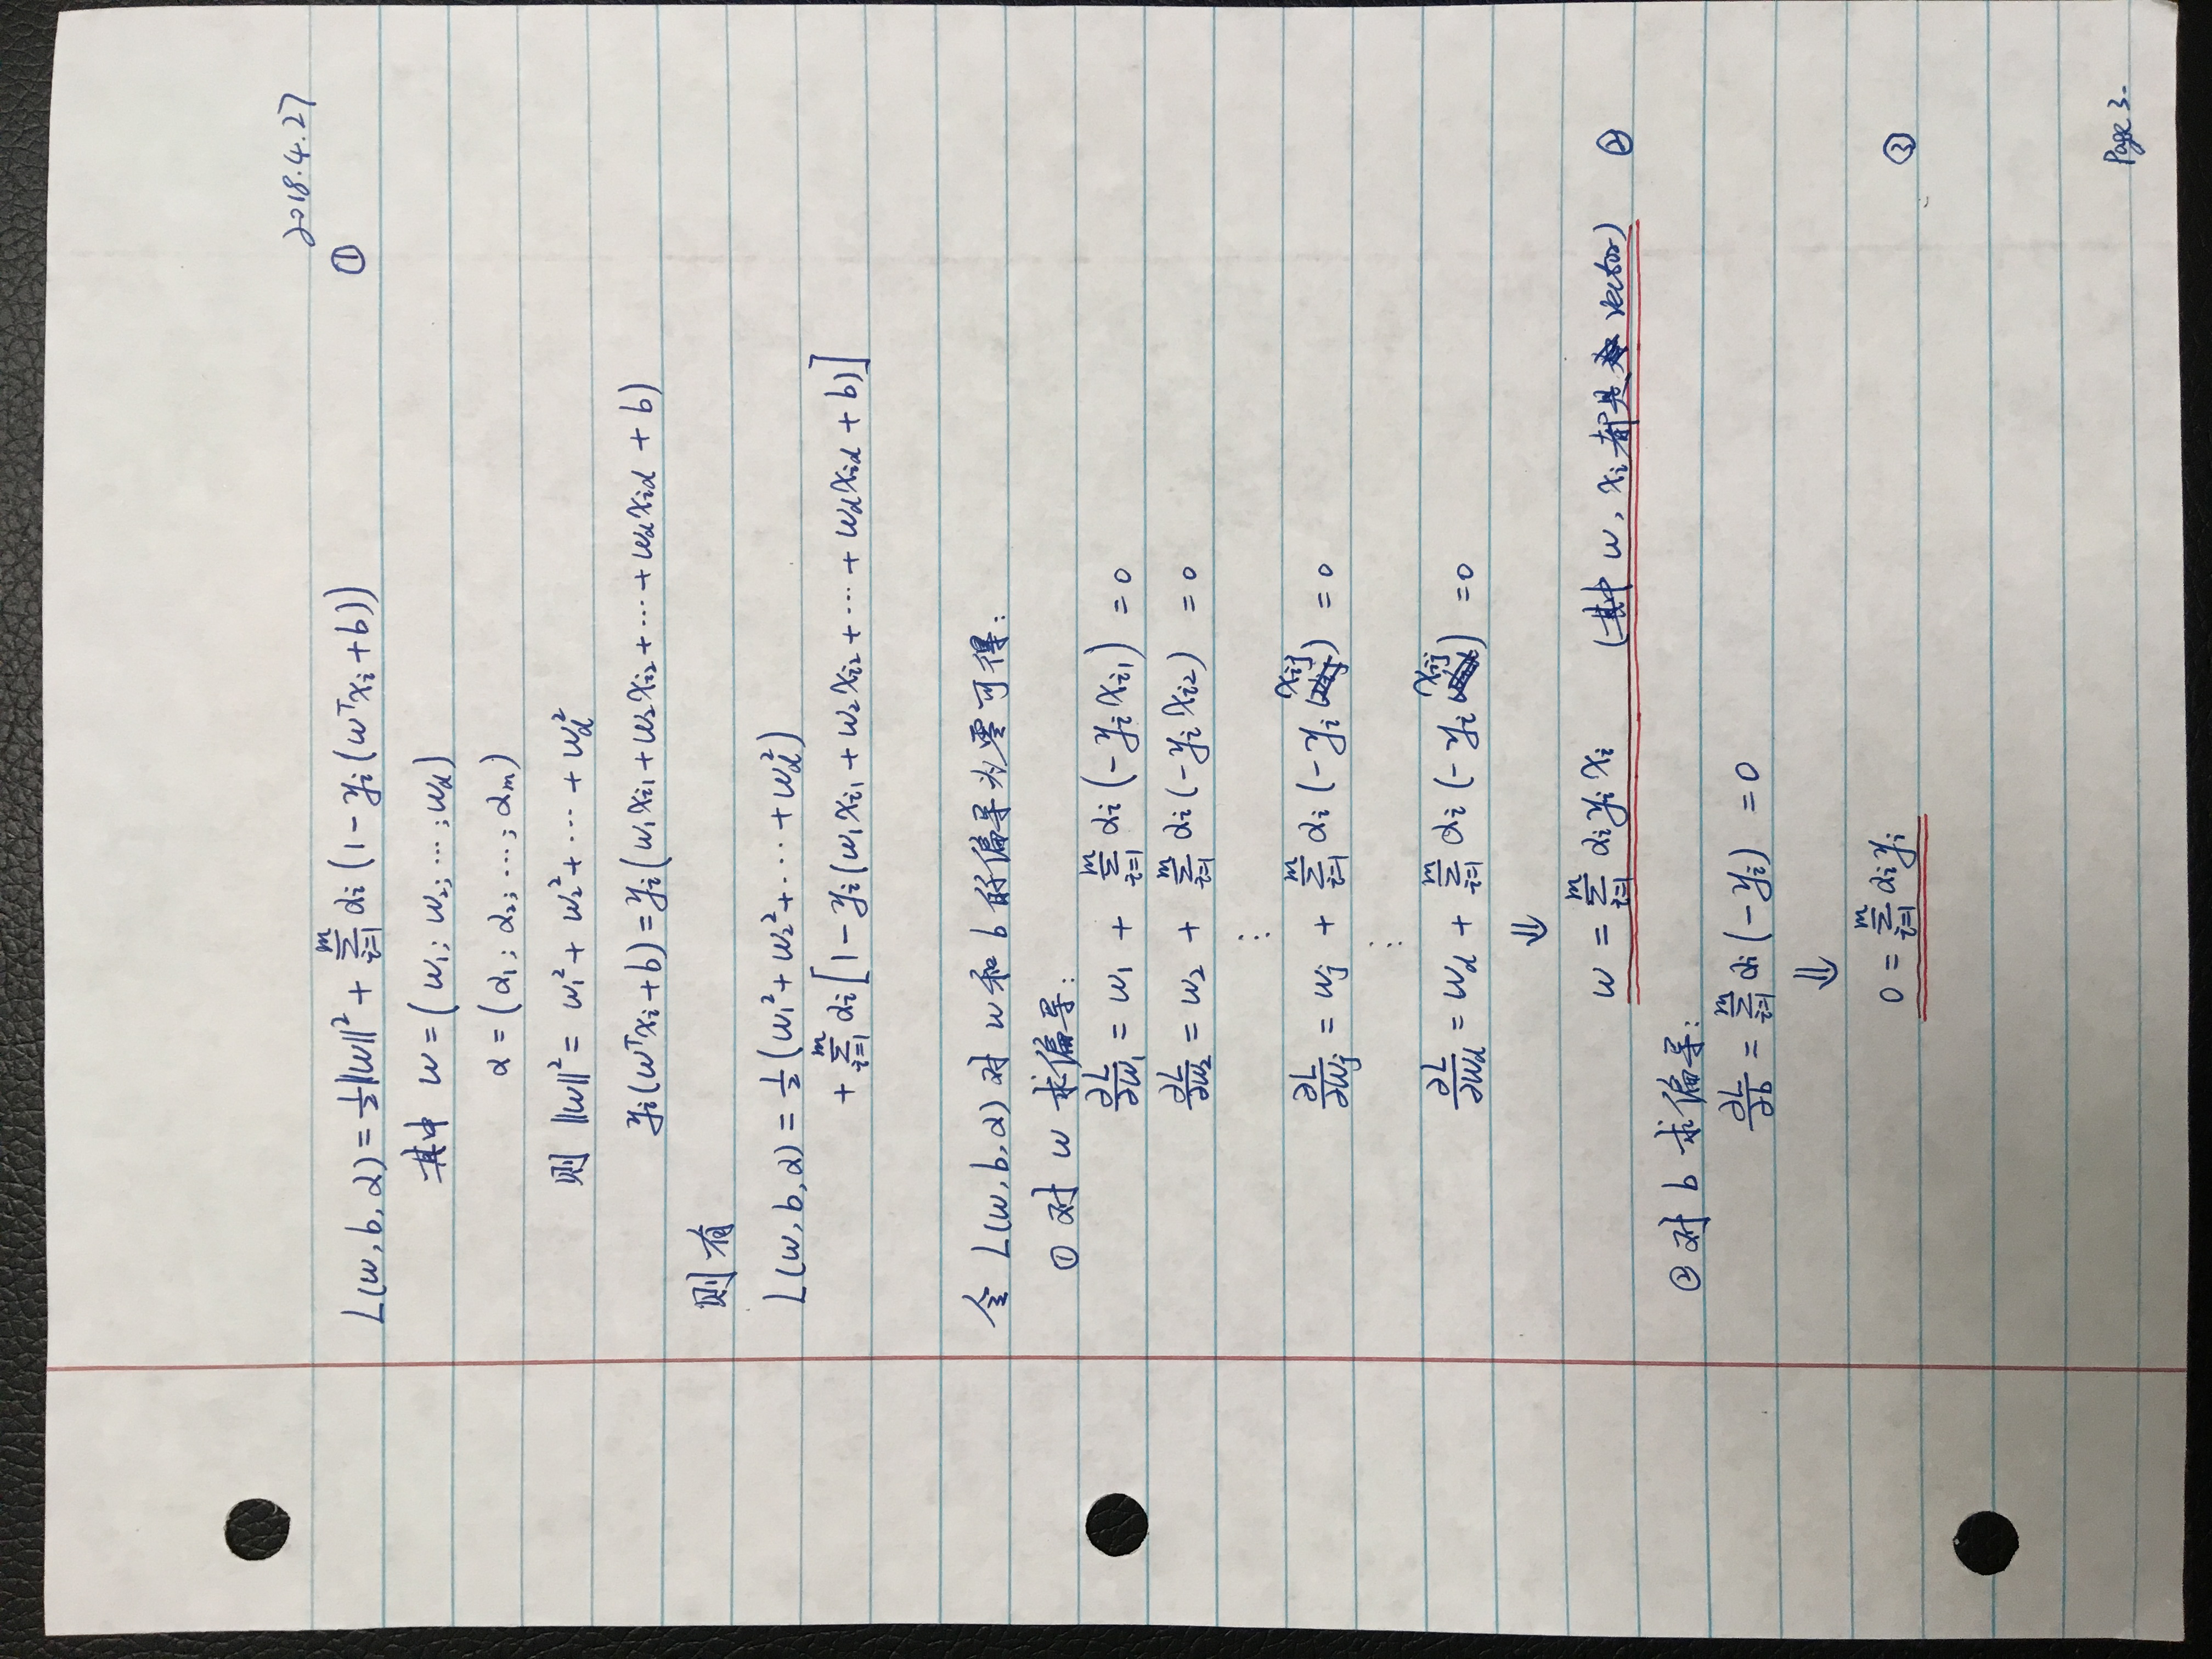 2018.4.27
L(w, b, α) = ½||w||² + Σᵢ₌₁ᵐ αᵢ (1 - yᵢ (wᵀxᵢ + b)) ①
其中 w = (w₁; w₂; ⋯; w_d)
α = (α₁; α₂; ⋯; αₘ)
则 ||w||² = w₁² + w₂² + ⋯ + w_d²
yᵢ(wᵀxᵢ + b) = yᵢ(w₁xᵢ₁ + w₂xᵢ₂ + ⋯ + w_d x_id + b)
则有
L(w, b, α) = ½ (w₁² + w₂² + ⋯ + w_d²)
+ Σᵢ₌₁ᵐ αᵢ [1 - yᵢ(w₁xᵢ₁ + w₂xᵢ₂ + ⋯ + w_d x_id + b)]
令 L(w, b, α) 对 w 和 b 的偏导为零可得:
① 对 w 求偏导:
∂L/∂w₁ = w₁ + Σᵢ₌₁ᵐ αᵢ (-yᵢxᵢ₁) = 0
∂L/∂w₂ = w₂ + Σᵢ₌₁ᵐ αᵢ (-yᵢxᵢ₂) = 0
⋮
∂L/∂wⱼ = wⱼ + Σᵢ₌₁ᵐ αᵢ (-yᵢ xᵢⱼ) = 0
⋮
∂L/∂w_d = w_d + Σᵢ₌₁ᵐ αᵢ (-yᵢ xᵢⱼ) = 0
⇓
w = Σᵢ₌₁ᵐ αᵢyᵢxᵢ (其中 w, xᵢ 都是 vector) ②
② 对 b 求偏导:
∂L/∂b = Σᵢ₌₁ᵐ αᵢ (-yᵢ) = 0
⇓
0 = Σᵢ₌₁ᵐ αᵢyᵢ ③
Page 3.